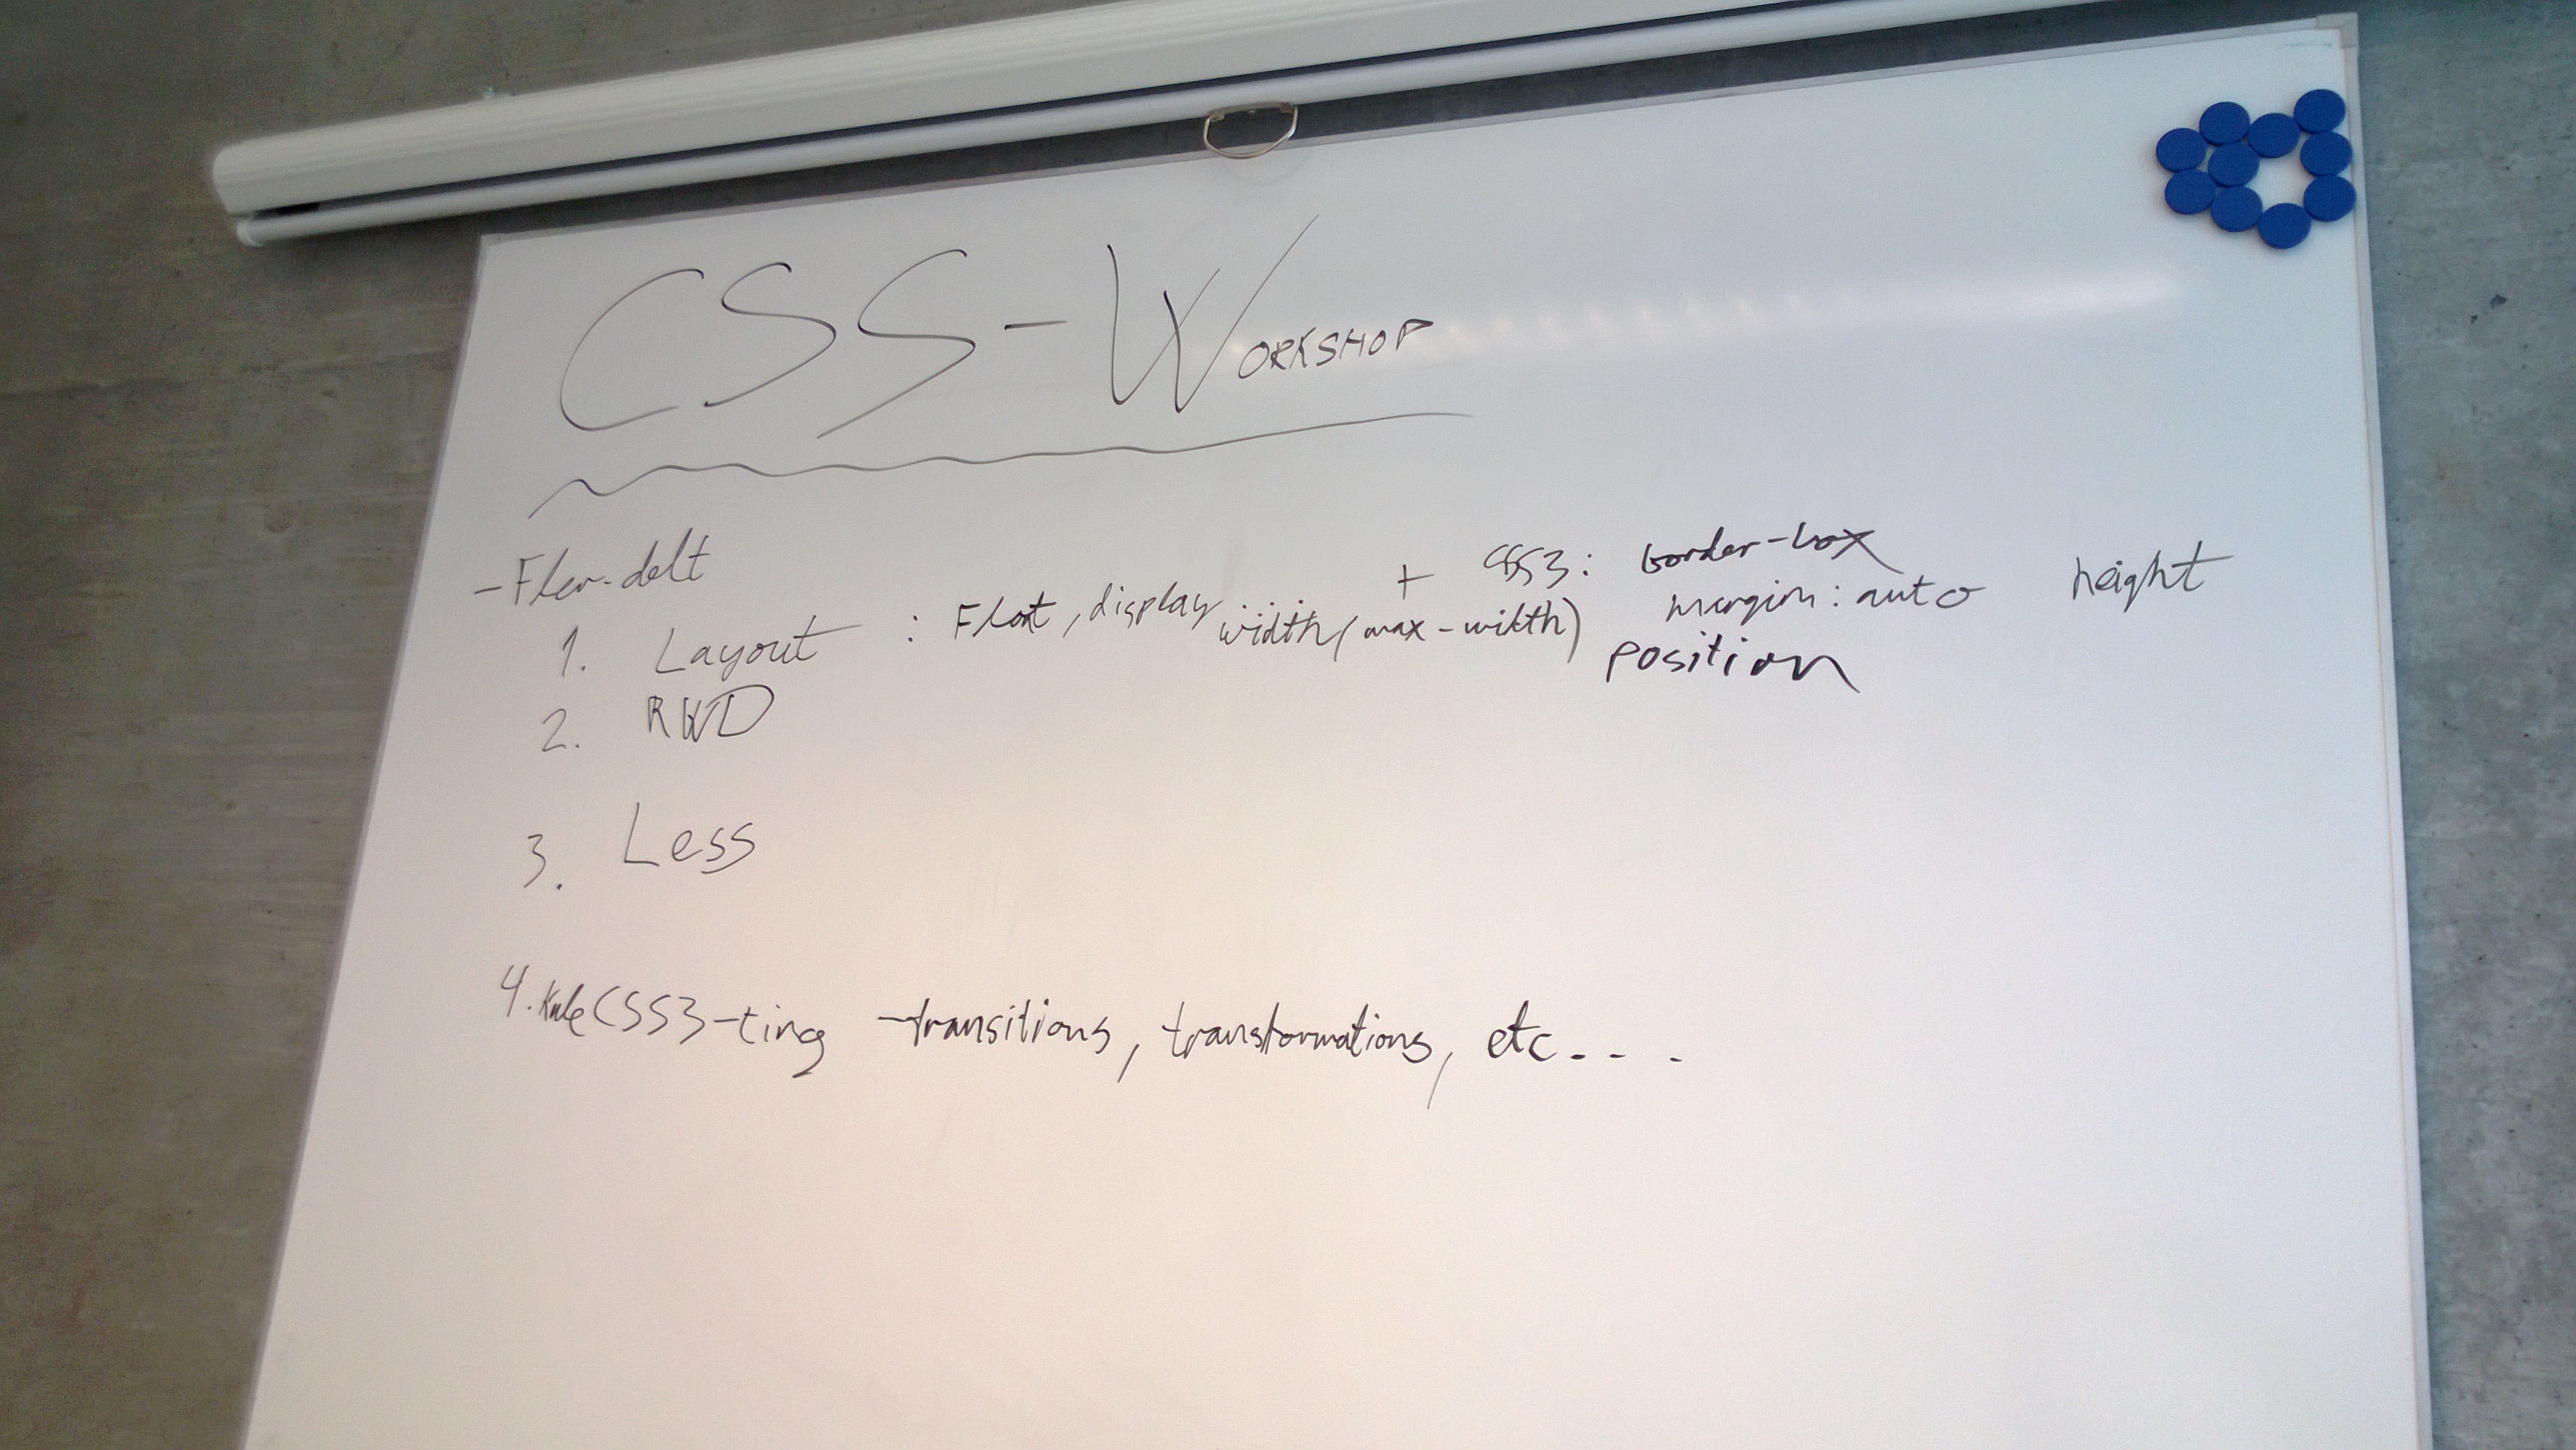 CSS-WORKSHOP
- Fler-delt
1. Layout : Float, display width (max-width) + CSS3: border-box margin: auto height position
2. RWD
3. Less
4. Kule CSS3-ting - transitions, transformations, etc...